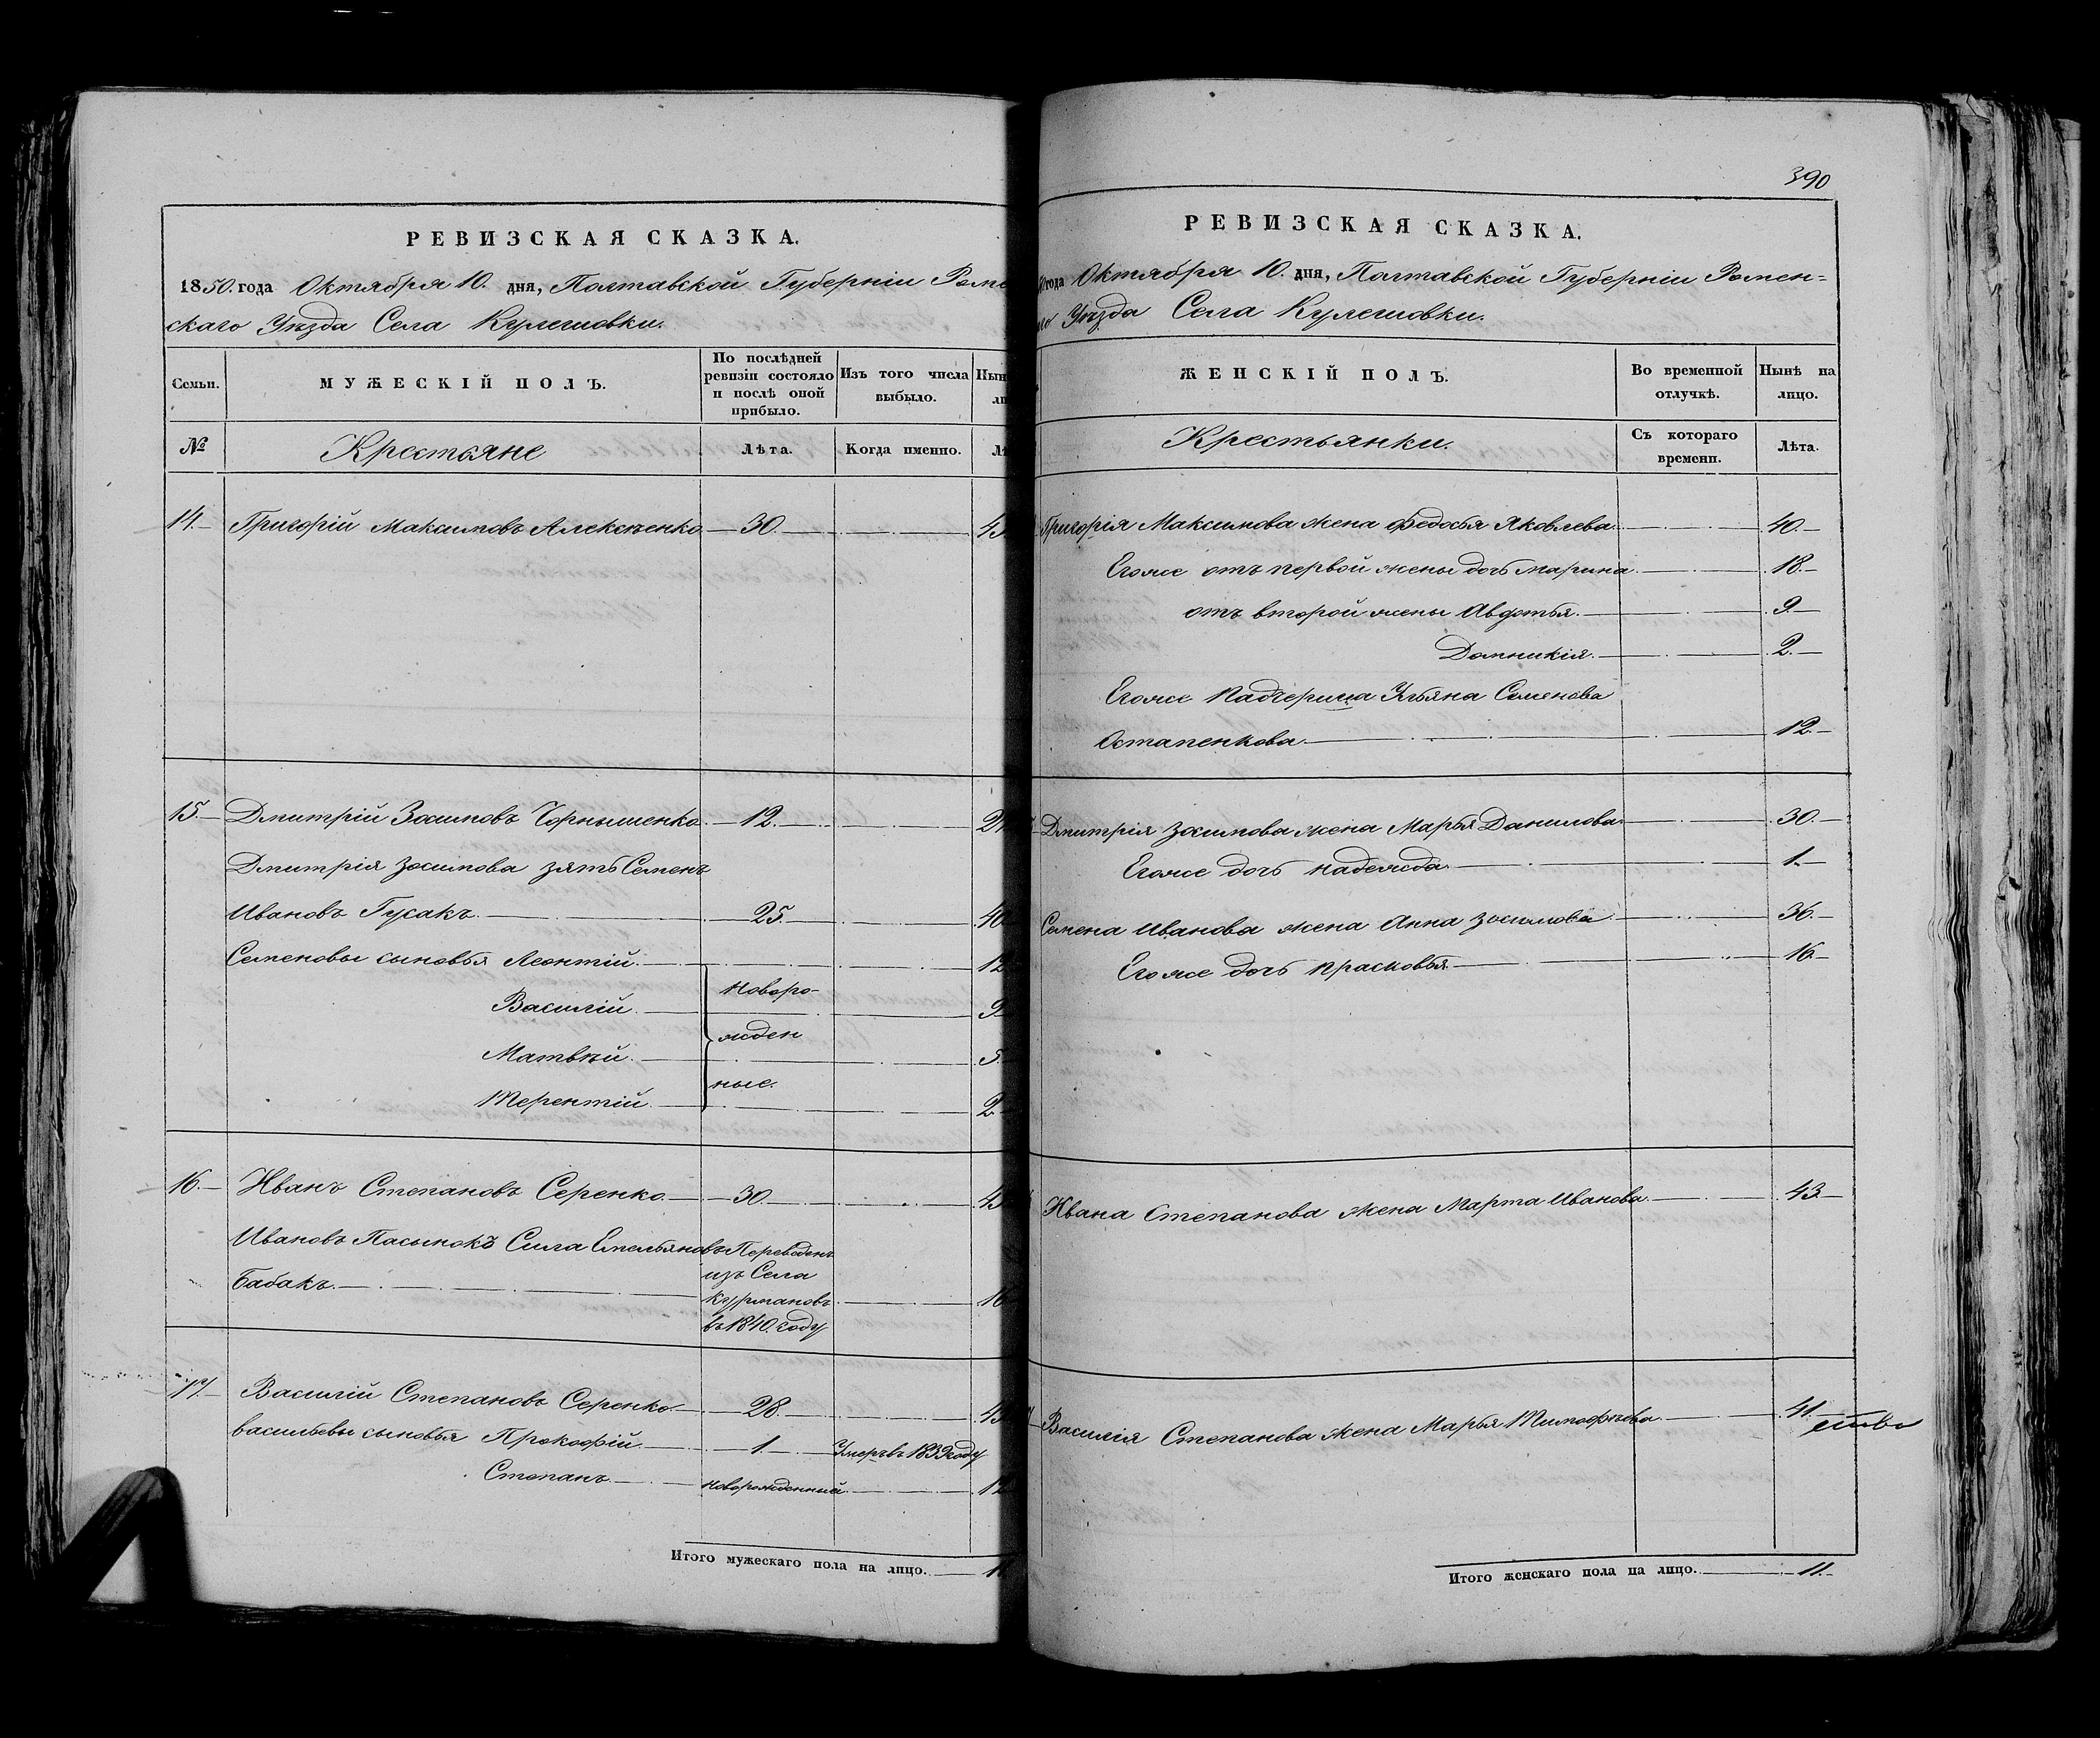 РЕВИЗСКАЯ СКАЗКА.
1850. года Октября 10. дня, Полтавской Губерніи Роме
скаго Уѣзда Села Кулешовки.
Семьи.
МУЖЕСКІЙ ПОЛЪ.
По послѣдней ревизіи состояло и послѣ оной прибыло.
Изъ того числа выбыло.
№
Крестьяне
Лѣта.
Когда именно.
14. Григорій Максимовъ Алексѣенко 30.
15. Дмитрій Зосимовъ Чорнышенко 12.
Дмитрія Зосимова зять Семенъ
Ивановъ Гусакъ. 25. 40
Семеновы сыновья Леонтій. 12
Василій. Новоро- 9
Матвѣй. жден 5.
Терентій. ные. 2.
16. Иванъ Степановъ Серенко. 30.
Ивановъ Пасынокъ Сила Емельяновъ Переведенъ
изъ Села
Бабакъ. Курмановъ 16
въ 1840. году
17. Василій Степановъ Серенко 28.
васильевы сыновья Прокофій. 1. Умеръ въ 1839 году
Степанъ. новорожденный. 12
Итого мужескаго пола на лицо.
390
РЕВИЗСКАЯ СКАЗКА.
года Октября 10. дня, Полтавской Губерніи Ромен-
Уѣзда Села Кулешовки.
ЖЕНСКІЙ ПОЛЪ.
Во временной отлучкѣ.
Нынѣ на лицо.
Крестьянки.
Съ котораго времени.
Лѣта.
Григорія Максимова жена Федосья Яковлева. 40.
Егоже отъ первой жены дочь Марина. 18.
отъ второй жены Авдотья. 9.
Домникія. 2.
Егоже Падчерица Ульяна Семенова
Остапенкова. 12.
Дмитрія Зосимова жена Марья Данилова. 30.
Егоже дочь Надежда. 1.
Семена Иванова жена Анна Зосимова 36.
Егоже дочь Прасковья. 16.
Ивана Степанова жена Марта Иванова. 43.
Василія Степанова жена Марья Тимофѣева. 41.
Итого женскаго пола на лицо. 11.